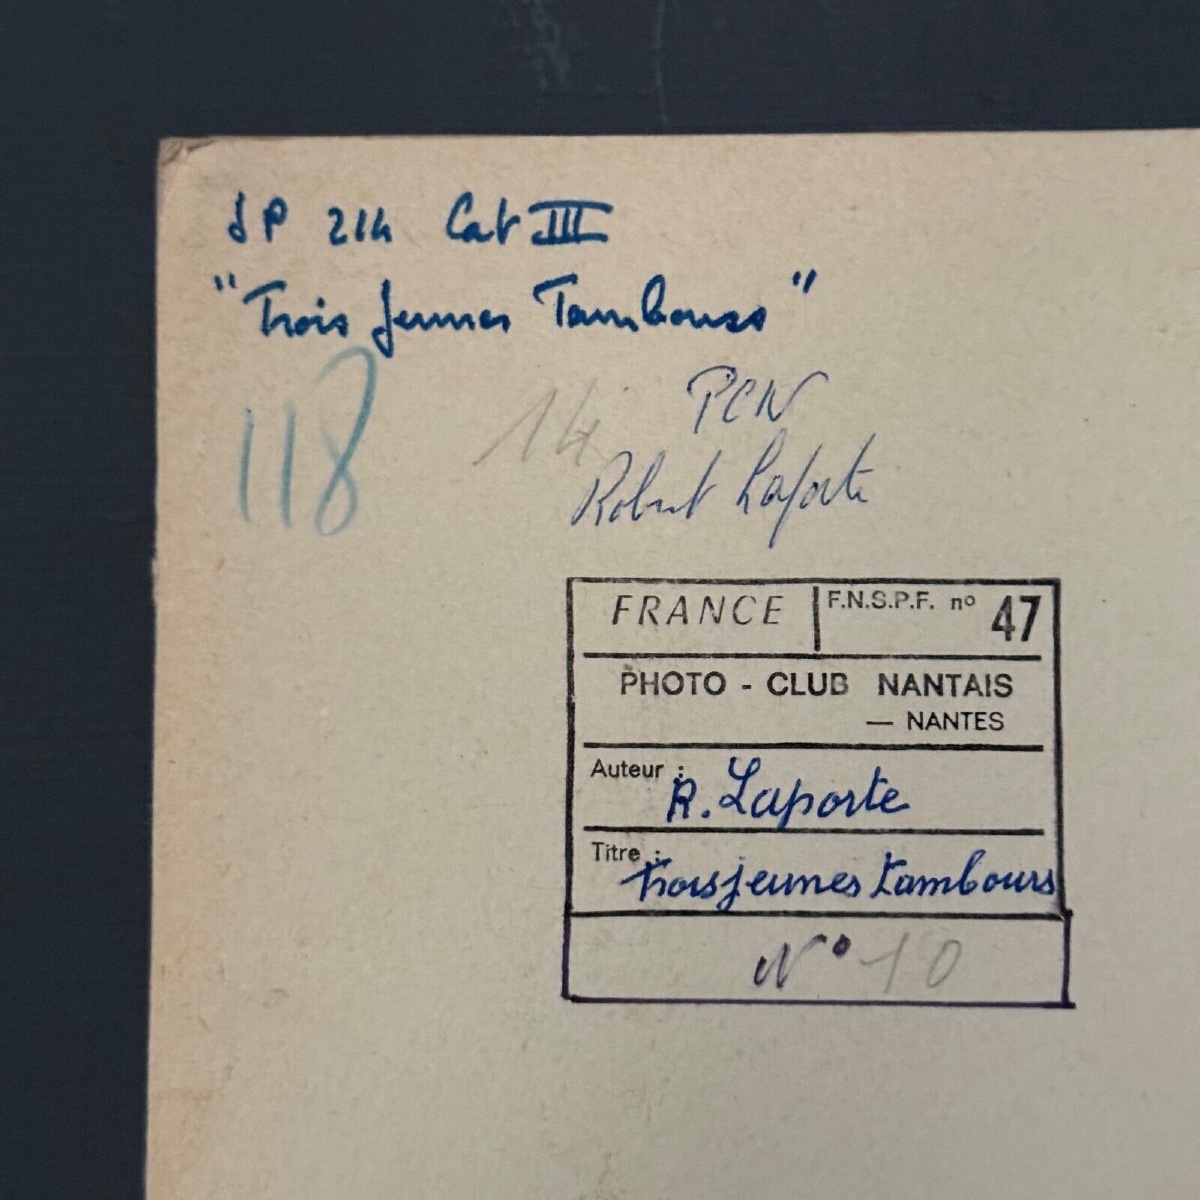 SP 214 Cat III
"Trois Jeunes Tambours"
118
14
PCN
Robert Laporte
FRANCE F.N.S.P.F. nº 47
PHOTO - CLUB NANTAIS
— NANTES
Auteur : R. Laporte
Titre : Trois jeunes tambours
N° 10